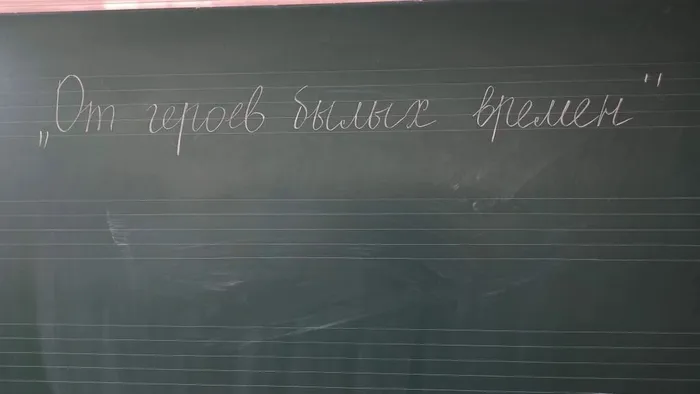 „От героев былых времен"